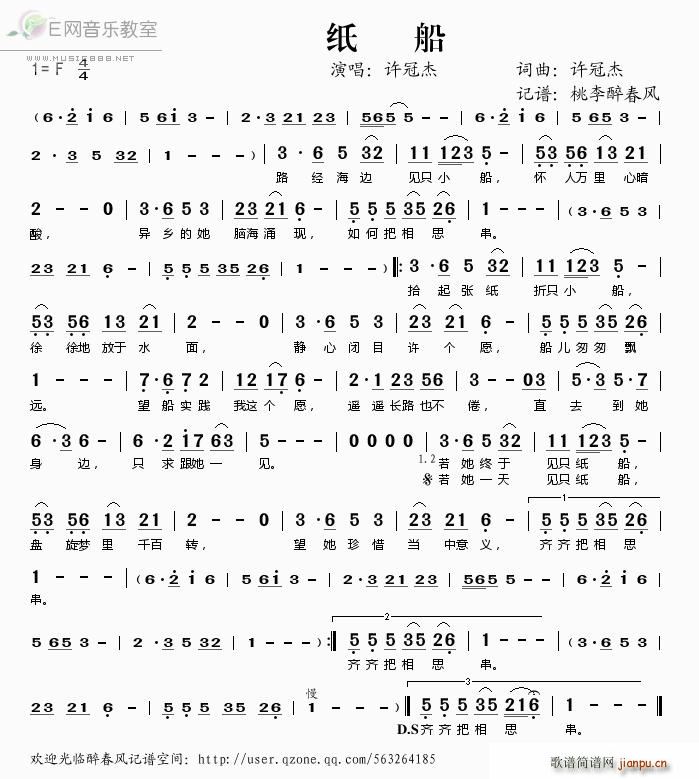 E网音乐教室
WWW.MUSIC888.NET
纸 船
1=F 4/4
演唱：许冠杰 词曲：许冠杰
记谱：桃李醉春风
(6·2 i 6 | 5 61 3 - | 2·3 21 23 | 565 5 - - | 6·2 i 6 | 565 3 -
2·3 5 32 | 1 - - -) | 3·6 5 32 | 11 123 5 - | 53 56 13 21 |
路 经 海 边 见只 小 船， 怀 人万 里 心暗
2 - - 0 | 3·6 5 3 | 23 21 6 - | 5 5 5 35 26 | 1 - - - | (3·6 5 3 |
酸， 异 乡 的 她 脑海 涌 现， 如 何 把 相 思 串。
23 21 6 - | 5 5 5 35 26 | 1 - - -) ‖: 3·6 5 32 | 11 123 5 - |
拾 起 张 纸 折只 小 船，
53 56 13 21 | 2 - - 0 | 3·6 5 3 | 23 21 6 - | 5 5 5 35 26 |
徐 徐地 放于 水 面， 静 心 闭 目 许 个 愿， 船 儿 匆 匆 飘
1 - - - | 7·6 7 2 | 17 17 6 - | 2·1 23 56 | 3 - - 03 | 5·3 5·7 |
远。 望 船 实 践 我这 个 愿， 遥 遥 长路 也不 倦， 直 去 到 她
6·3 6 - | 6·2 17 63 | 5 - - - | 0 0 0 0 | 3·6 5 32 | 11 123 5 - |
身 边， 只 求 跟她 一 见。 1.2 若 她 终 于 见只 纸 船，
𝄋若 她 一 天 见只 纸 船，
53 56 13 21 | 2 - - 0 | 3·6 5 3 | 23 21 6 - | 5 5 5 35 26 |
1
盘 旋梦 里 千百 转， 望 她 珍 惜 当 中意 义， 齐 齐 把 相 思
1 - - - | (6·2 i 6 | 5 61 3 - | 2·3 21 23 | 565 5 - - | 6·2 i 6 |
串。
565 3 - | 2·3 5 32 | 1 - - -) :‖ 5 5 5 35 26 | 1 - - - | (3·6 5 3 |
2
齐 齐 把 相 思 串。
23 21 6 - | 5 5 5 35 26 | 1 - - -) ‖ 5 5 5 35 216 | 1 - - - ‖
慢 3
D.S 齐 齐 把 相 思 串。
欢迎光临醉春风记谱空间：http://user.qzone.qq.com/563264185
歌谱简谱网 jianpu.cn